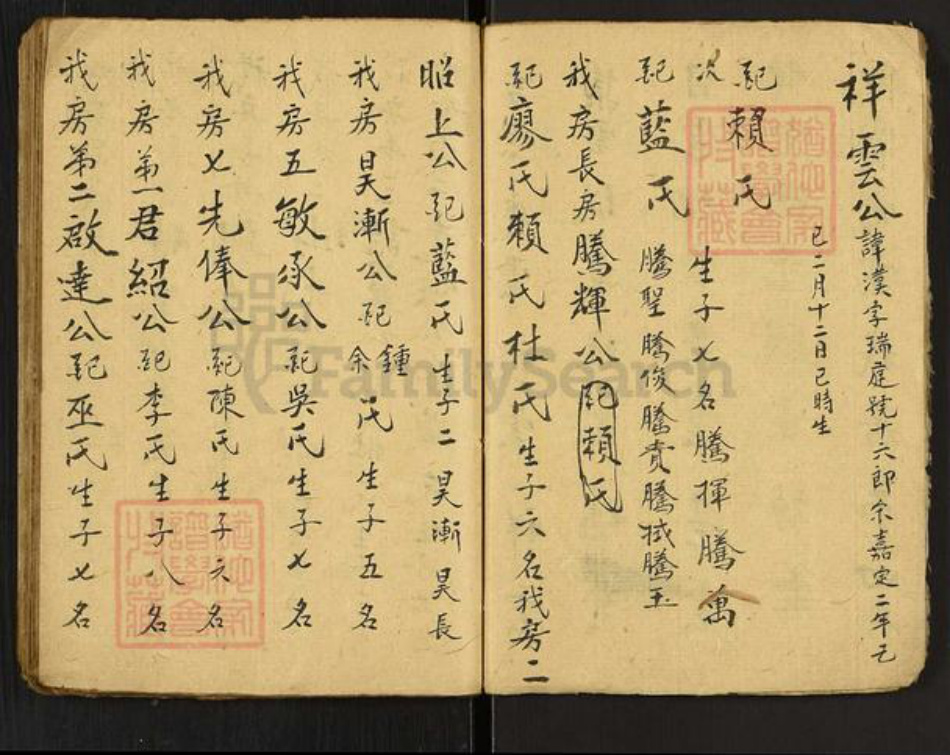 祥雲公諱漢字瑞庭號十六郎宗嘉定二年己
巳二月十二日巳時生
妣賴氏
次
生子七名騰揮騰萬
妣藍氏 騰聖騰俊騰貴騰拭騰玉
我房長房騰輝公妣賴氏
妣廖氏賴氏杜氏生子六名我房二
昭上公妣藍氏生子二昊漸昊長
我房昊漸公妣鍾余氏生子五名
我房五敏承公妣吳氏生子七名
我房七先俸公妣陳氏生子六名
我房第一君紹公妣李氏生子八名
我房第二啟達公妣巫氏生子七名
FamilySearch